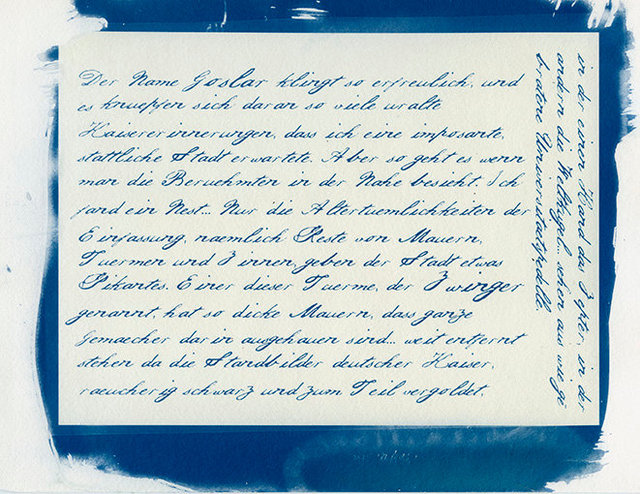 Der Name Goslar klingt so erfreulich, und
es knuepfen sich daran so viele uralte
Kaisererinnerungen, dass ich eine imposante,
stattliche Stadt erwartete. Aber so geht es wenn
man die Beruehmten in der Nahe besieht. Ich
fand ein Nest... Nur die Altertuemlichkeiten der
Einfassung, naemlich Reste von Mauern,
Tuermen und Zinnen, geben der Stadt etwas
Pikantes. Einer dieser Tuerme, der Zwinger
genannt, hat so dicke Mauern, dass ganze
Gemaecher darin ausgehauen sind... weit entfernt
stehen da die Standbilder deutscher Kaiser,
raeucherig schwarz und zum Teil vergoldet,
in der einen Hand das Zepter, in der
andern die Weltkugel... sehen aus wie ge
bratene Universitaetspedelle.